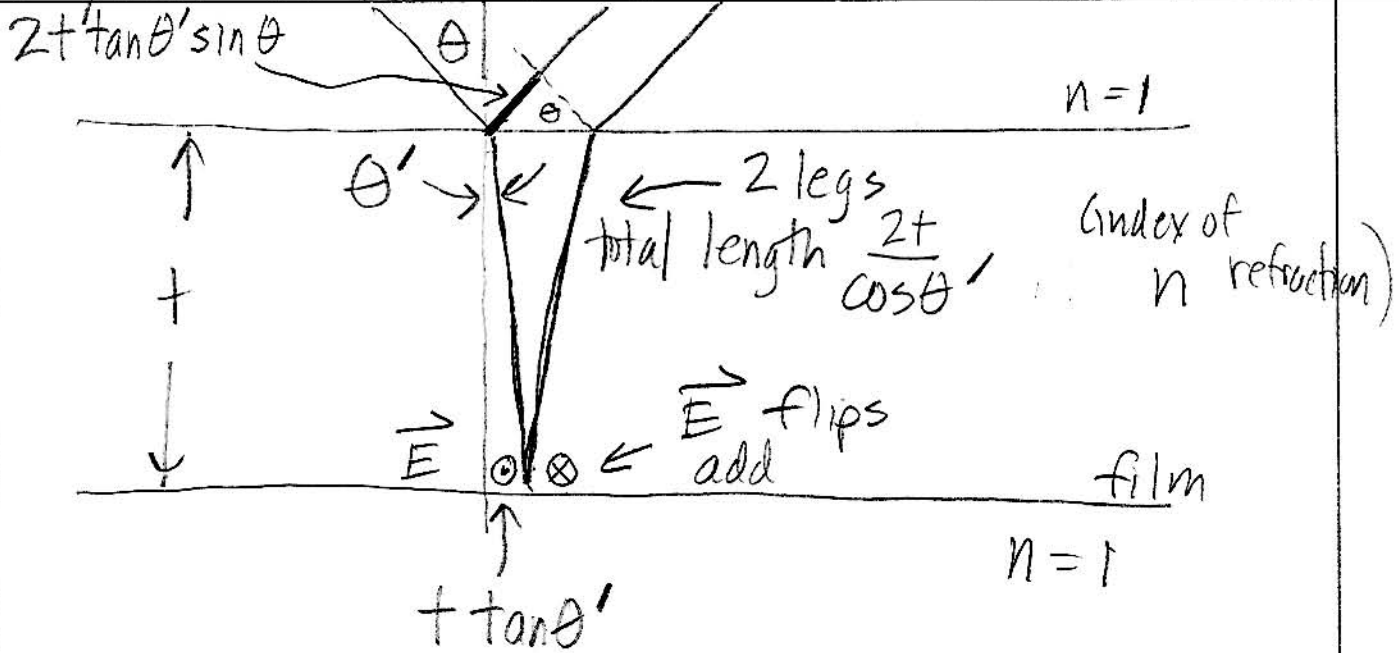 2t'tanθ'sinθ
θ
θ
n=1
θ'
2 legs
total length 2t/cosθ'
(index of
n refraction)
t
E⃗
⊙ ⊗
E⃗ flips
add
film
t tanθ'
n=1